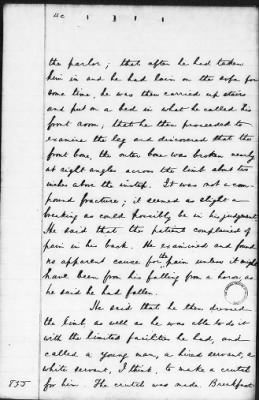 the parlor; that after he had taken
him in and he had lain on the sofa for
some time, he was then carried up stairs
and put on a bed in what he called his
front room; that he then proceeded to
examine the leg and discovered that the
front bone, the outer bone was broken nearly
at right angles across the limb about two
inches above the instep. It was not a com-
pound fracture; it seemed as slight a
breaking as could possibly be in his judgment.
He said that the patient complained of
pain in his back. He examined and found
no apparent cause for the pain unless it might
have been from his falling from a horse, as
he said he had fallen.
He said that he then dressed
the limb as well as he was able to do it
with the limited facilities he had, and
called a young man, a hired servant, a
white servant, I think, to make a crutch
for him. The crutch was made. Breakfast
835